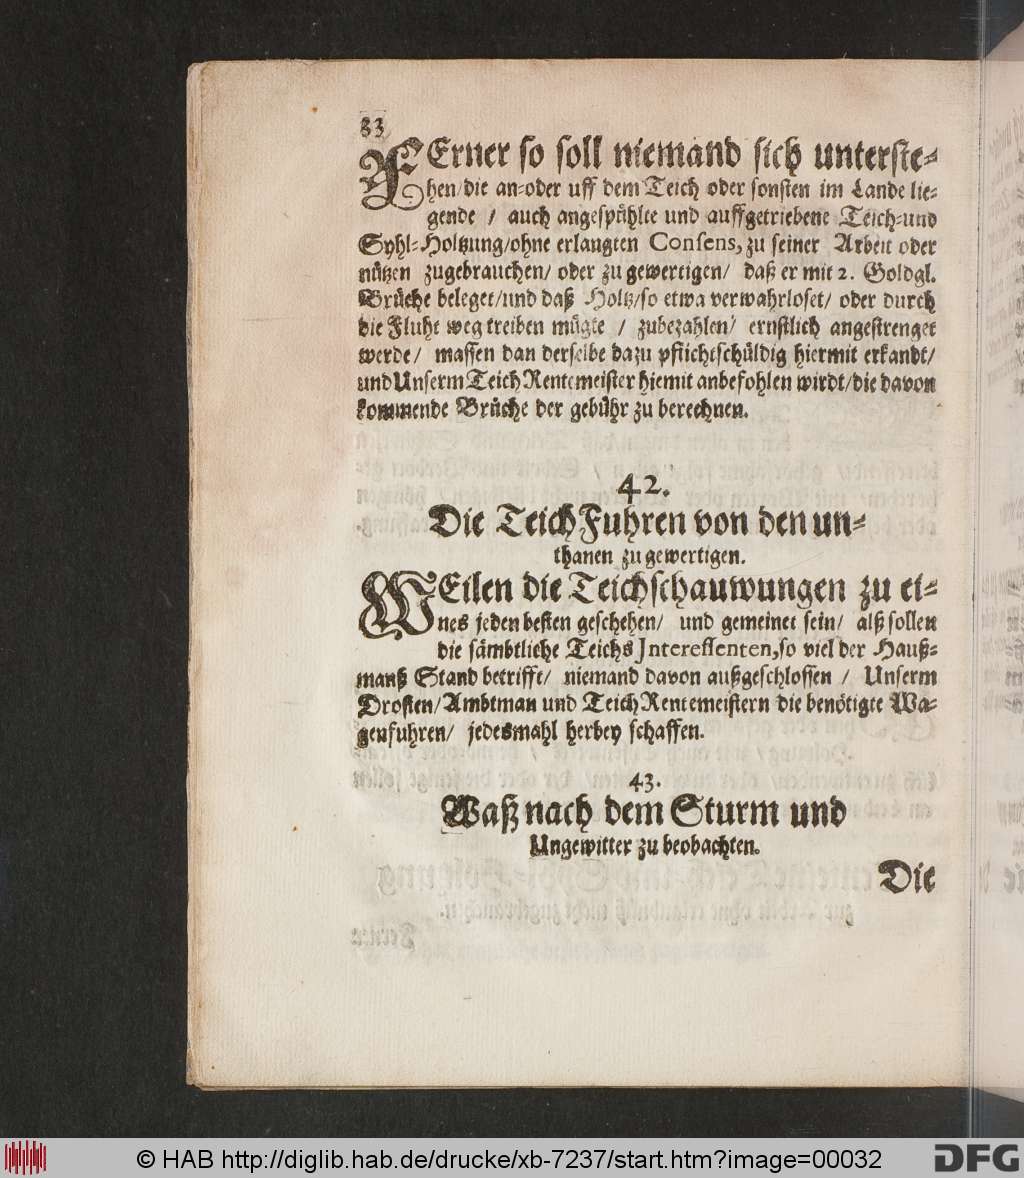 33
FErner so soll niemand sich unterste-
hen/die an-oder uff dem Teich oder sonsten im Lande lie-
gende / auch angespühlte und auffgetriebene Teich-und
Syhl-Holtzung/ohne erlangten Consens, zu seiner Arbeit oder
nützen zugebrauchen/ oder zu gewertigen/ daß er mit 2. Goldgl.
Brüche beleget/und daß Holtz/so etwa verwahrloset/ oder durch
die Fluht weg treiben mügte / zubezahlen/ ernstlich angestrenget
werde/ massen dan derselbe dazu pflichtschüldig hiermit erkandt/
und Unserm Teich Rentemeister hiemit anbefohlen wirdt/die davon
kommende Brüche der gebühr zu berechnen.
42.
Die Teich Fuhren von den un-
thanen zu gewertigen.
WEilen die Teichschauwungen zu ei-
nes jeden besten geschehen/ und gemeinet sein/ alß sollen
die sämbtliche Teichs Interessenten, so viel der Hauß-
manß Stand betrifft/ niemand davon außgeschlossen / Unserm
Drosten/Ambtman und Teich Rentemeistern die benötigte Wa-
genfuhren/ jedesmahl herbey schaffen.
43.
Waß nach dem Sturm und
Ungewitter zu beobachten.
Die
© HAB http://diglib.hab.de/drucke/xb-7237/start.htm?image=00032
DFG